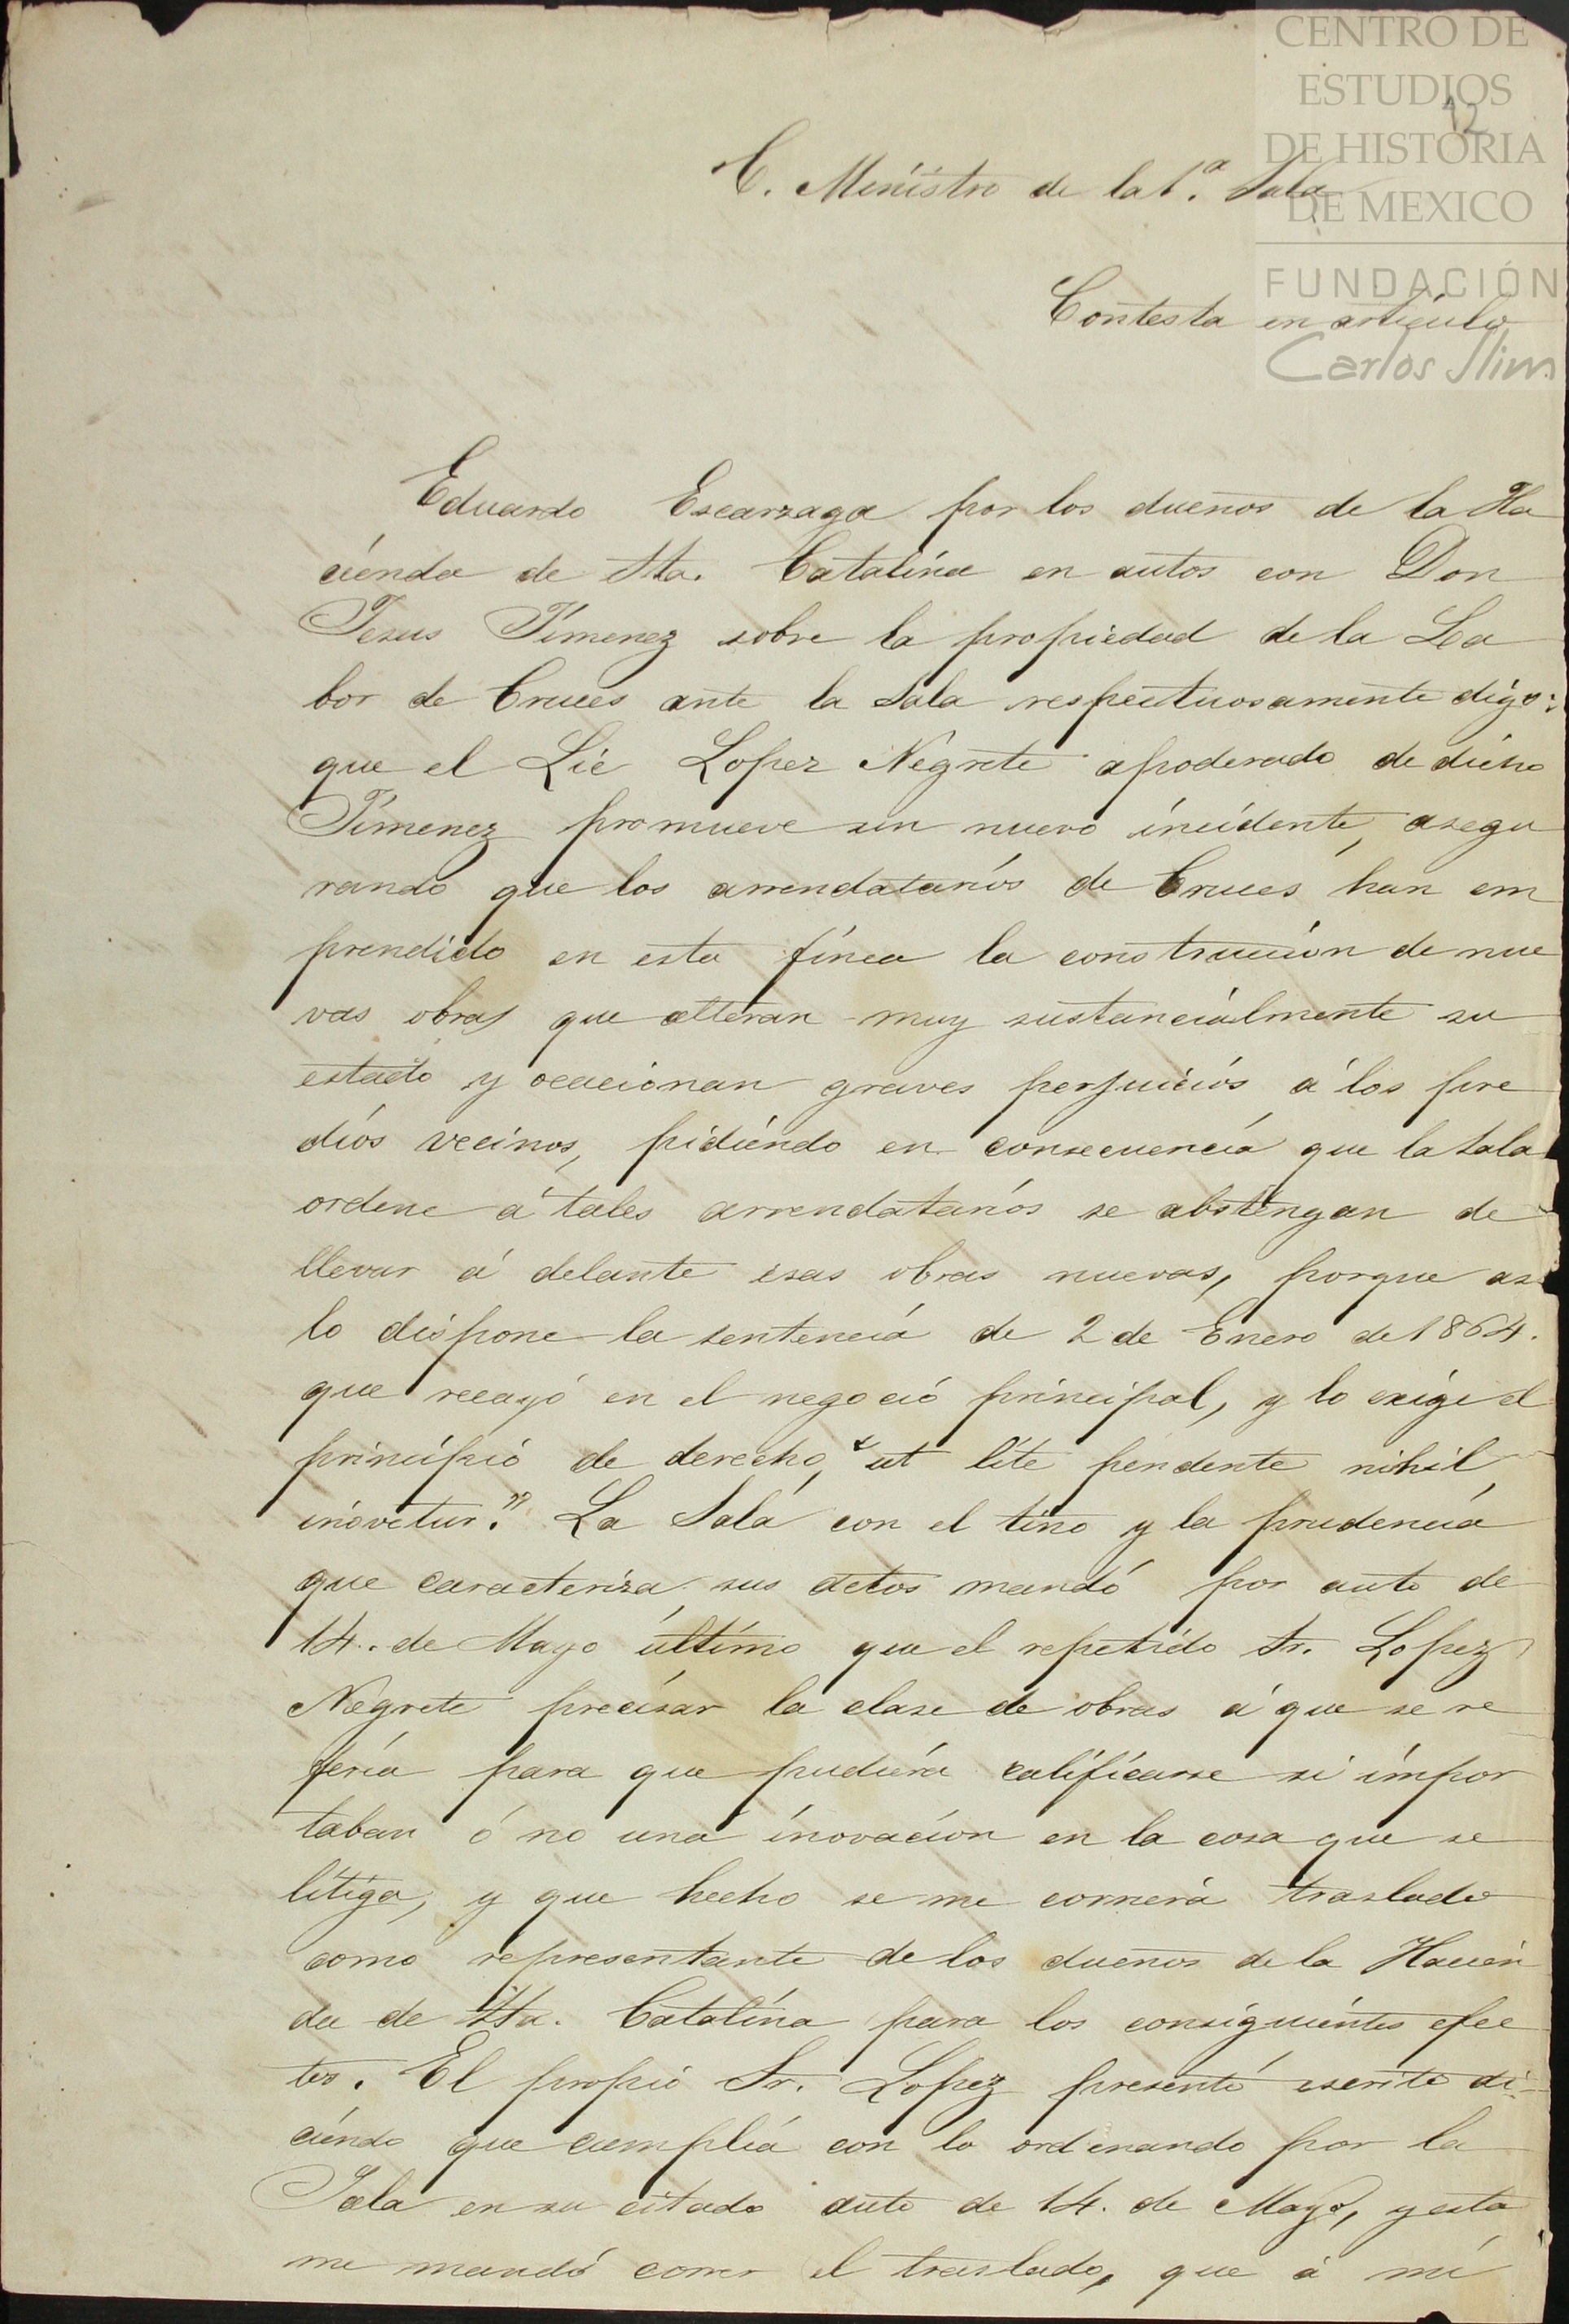 CENTRO DE
ESTUDIOS
12
DE HISTORIA
DE MEXICO
FUNDACIÓN
Carlos Slim
C. Ministro de la 1.ª Sala
Contesta en artículo
Eduardo Escarzaga por los dueños de la Ha
cienda de Sta. Catalina en autos con Don
Jesus Jimenez sobre la propiedad de la La
bor de Cruces ante la Sala respectuosamente digo:
que el Lic Lopez Negrete apoderado de dicho
Jimenez promueve un nuevo incidente, asegu
rando que los arrendatarios de Cruces han em
prendido en esta finca la construccion de nue
vas obras que alteran muy sustancialmente su
estado y ocacionan graves perjuicios á los pre
dios vecinos, pidiendo en consecuencia que la Sala
ordene á tales arrendatarios se abstengan de
llevar á delante esas obras nuevas, porque as
lo dispone la sentencia de 2 de Enero de 1864.
que recayó en el negocio principal, y lo exige el
principio de derecho, "ut lite pendente nihil
inovetur." La Sala con el tino y la prudencia
que caracteriza sus actos mandó por auto de
14. de Mayo último que el repetido Sr. Lopez
Negrete precisar la clase de obras á que se re
feria para que pudiera calificarse si impor
taban ó no una inovacion en la cosa que se
litiga, y que hecho se me correrá traslado
como representante de los dueños de la Hacien
da de Sta. Catalina para los consiguientes efec
tos. El propio Sr. Lopez presentó escrito di-
ciendo que cumplia con lo ordenando por la
Sala en su citado auto de 14. de Mayo, y esta
me mandó correr el traslado, que á mi